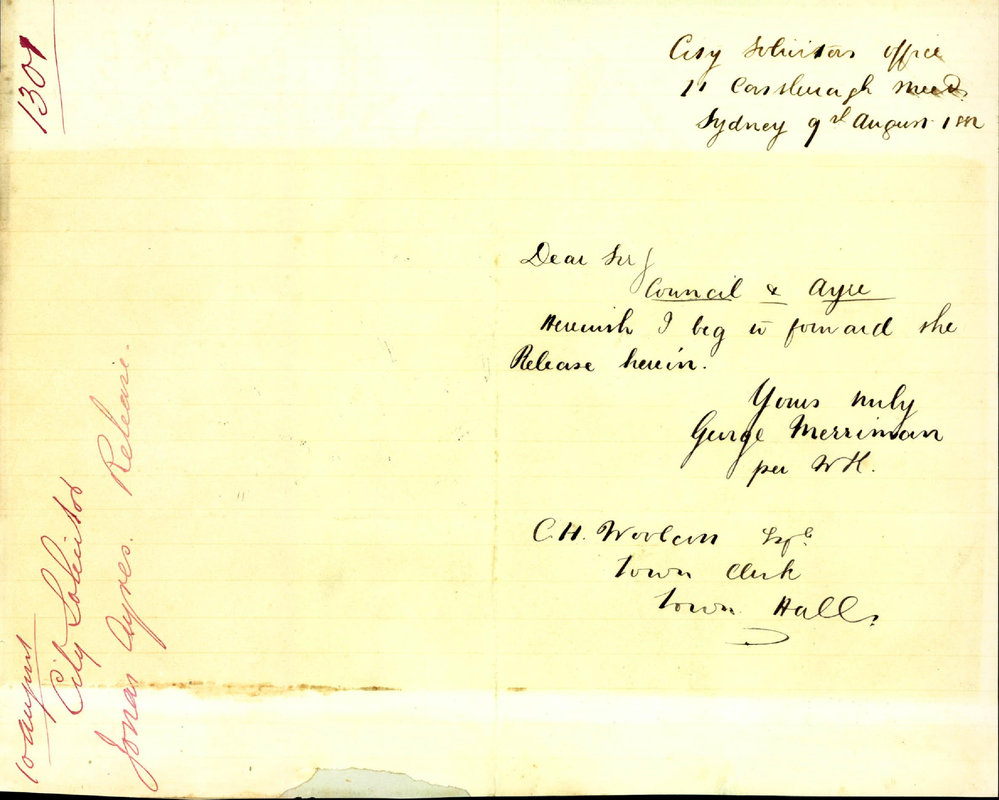 1301
10 August
City Solicitor
Jonas Ayres. Release.
City Solicitors Office
11 Castlereagh Street
Sydney 9th August 1882
Dear Sir
Council & Ayre
Herewith I beg to forward the
Release herein.
Yours truly
George Merriman
per WH.
C. H. Woolcott Esqre
Town Clerk
Town Hall.